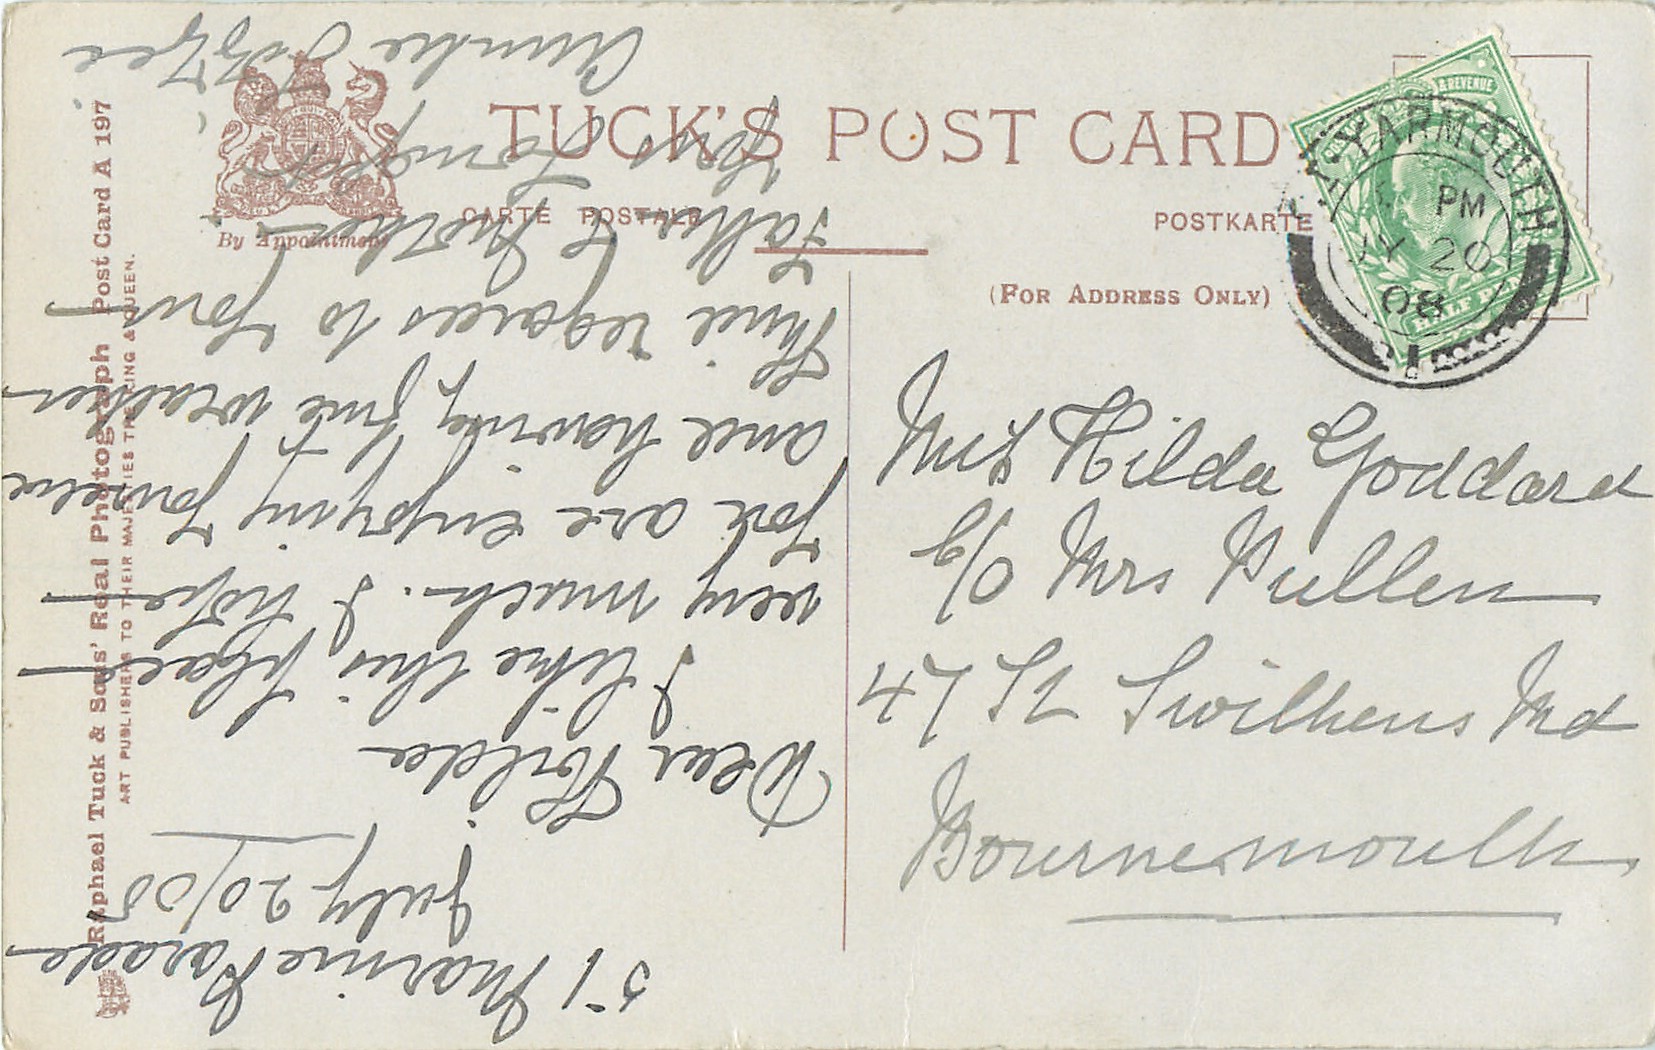 TUCK'S POST CARD
CARTE POSTALE
POSTKARTE
By Appointment
(FOR ADDRESS ONLY)
Raphael Tuck & Sons' Real Photograph Post Card A 197
ART PUBLISHERS TO THEIR MAJESTIES THE KING & QUEEN.
& REVENUE
HALF
YARMOUTH
PM
JY 20
08
Miss Hilda Goddard
c/o Mrs Pullen
St Swithens Rd
Bournemouth
51 Marine Parade
July 20/08
Dear Hilda
I like this place
very much. I hope
you are enjoying yourself
and having fine weather
Kind regards to your
Father & Mother
Yrs
Auntie